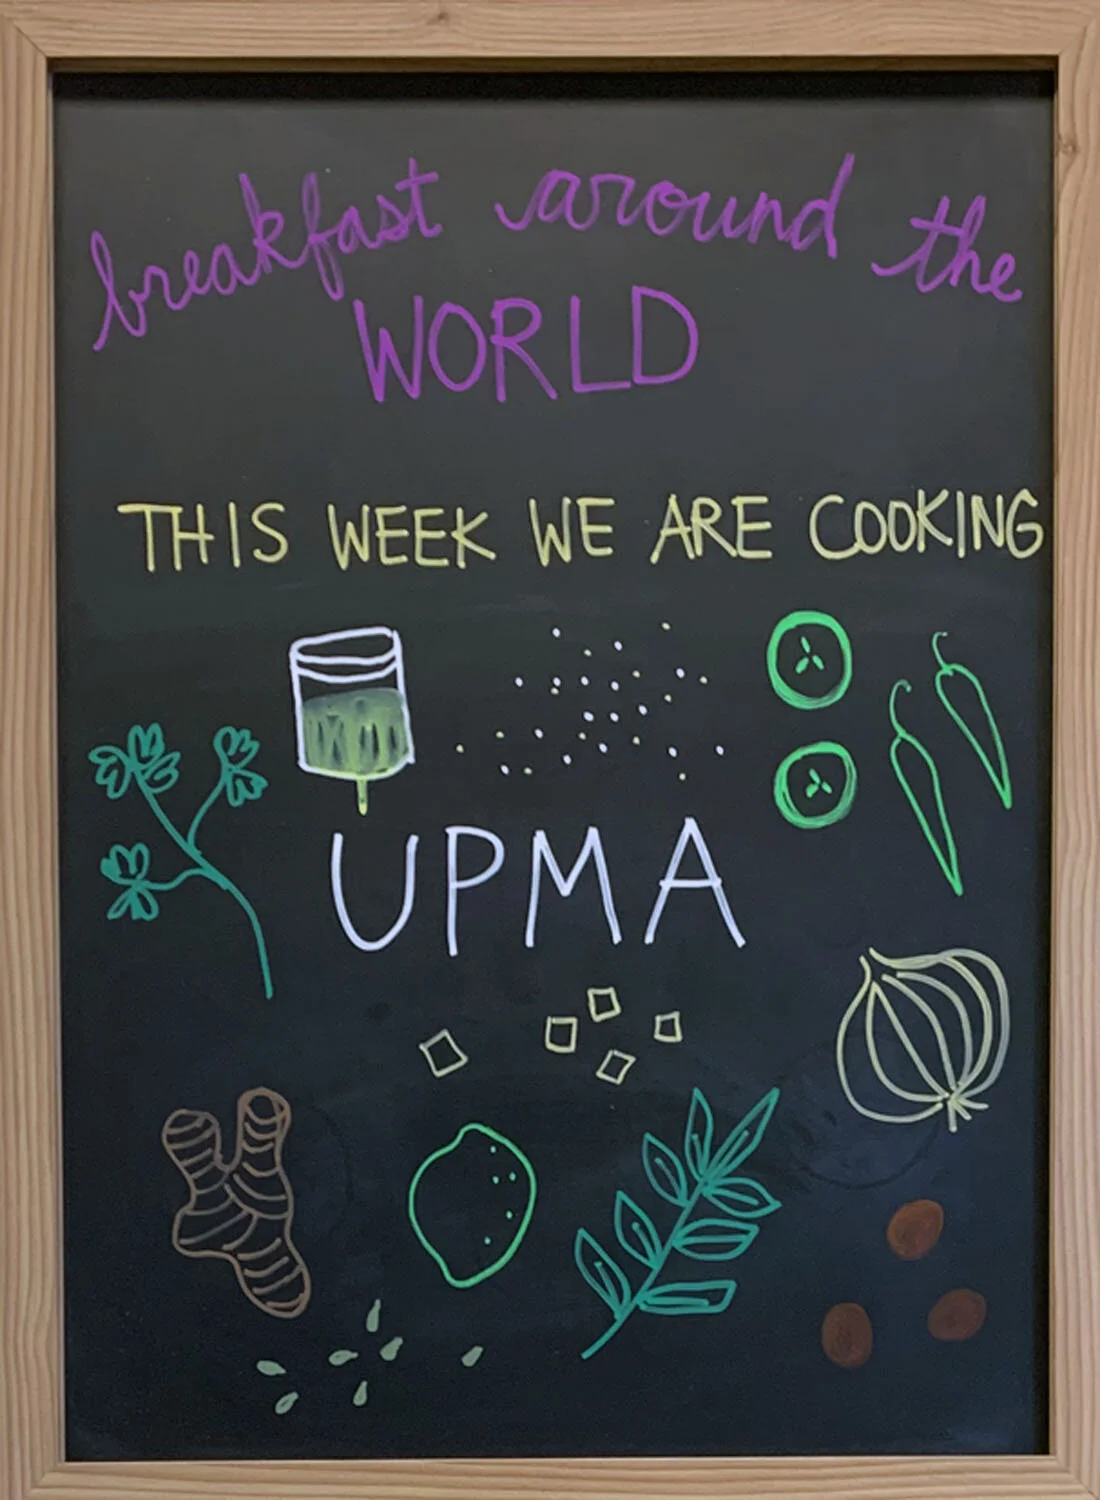 breakfast around the
WORLD
THIS WEEK WE ARE COOKING
UPMA